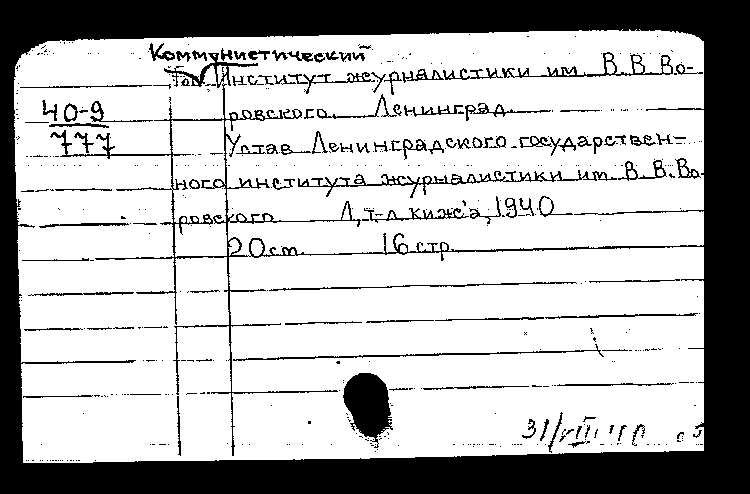 Коммунистический
Институт журналистики им. В. В. Во-
40-9
777
ровского. Ленинград.
Устав Ленинградского государствен=
ного института журналистики им. В. В. Во-
ровского. Л, т-л киж'а, 1940
20 ст. 16 стр.
31/VII